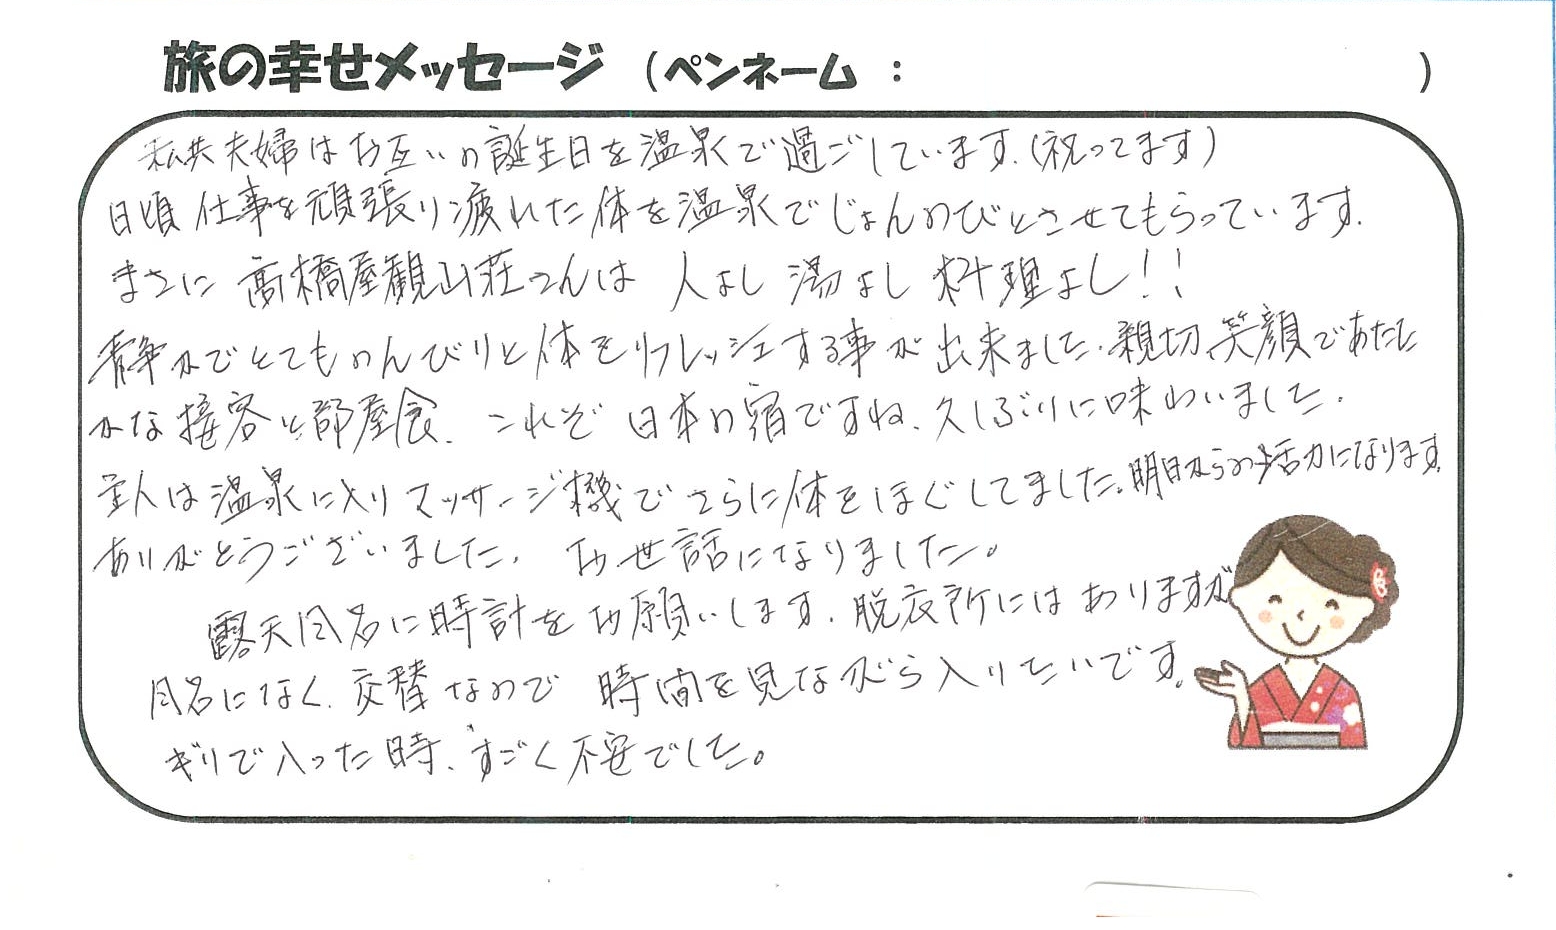 旅の幸せメッセージ (ペンネーム : )
私共夫婦はお互いの誕生日を温泉で過ごしています.(祝ってます)
日頃仕事を頑張り疲れた体を温泉でじょんのびとさせてもらっています.
まさに 高橋屋観山荘さんは 人よし 湯よし 料理よし!!
静かでとてものんびりと体をリフレッシュする事が出来ました.親切、笑顔であたた
かな接客と部屋食. これぞ 日本の宿ですね.久しぶりに味わいました.
主人は温泉に入りマッサージ機でさらに体をほぐしてました。明日からの活力になります.
ありがとうございました. お世話になりました。
露天風呂に時計をお願いします.脱衣所にはありますが
風呂になく.交替なので 時間を見ながら入りたいです.
ギリで入った時、すごく不安でした。